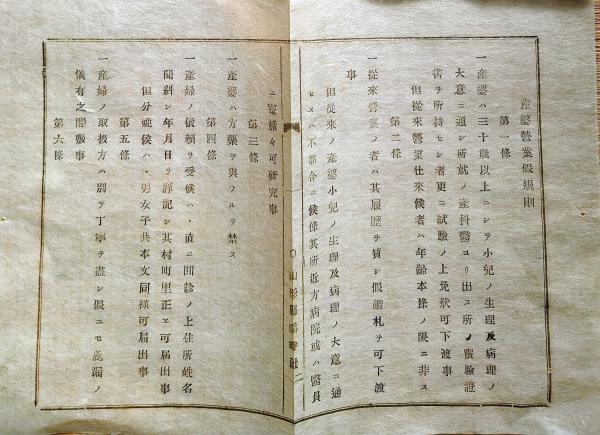 産婆営業假規則
第一條
一産婆ハ三十歳以上ニシテ小兒ノ生理及病理ノ
大意ニ通シ所就ノ産科醫ヨリ出ス所ノ實驗證
書ヲ所持セシ者更ニ試驗ノ上免狀可下渡事
但從來營業仕來候者ハ年齢本條ノ限ニ非ス
第二條
一從來營業ノ者ハ其履歴ヲ質シ假鑑札ヲ可下渡
事
但從來ノ産婆小兒ノ生理及病理ノ大意ニ通
セスハ不都合ニ候條其所近方病院或ハ醫員
ニ寄擔々可研究事
第三條
一産婆ハ方藥ヲ與フルヲ禁ス
第四條
一産婦ノ依頼ヲ受候ハ丶直ニ回診ノ上住所姓名
聞糾シ年月日ヲ詳記シ其村町里正エ可届出事
但分娩候ハ丶男女子共本文同様可届出事
第五條
一産婦ノ取扱方ハ別テ丁寧ヲ盡シ假ニモ麁漏ノ
儀有之間敷事
第六條